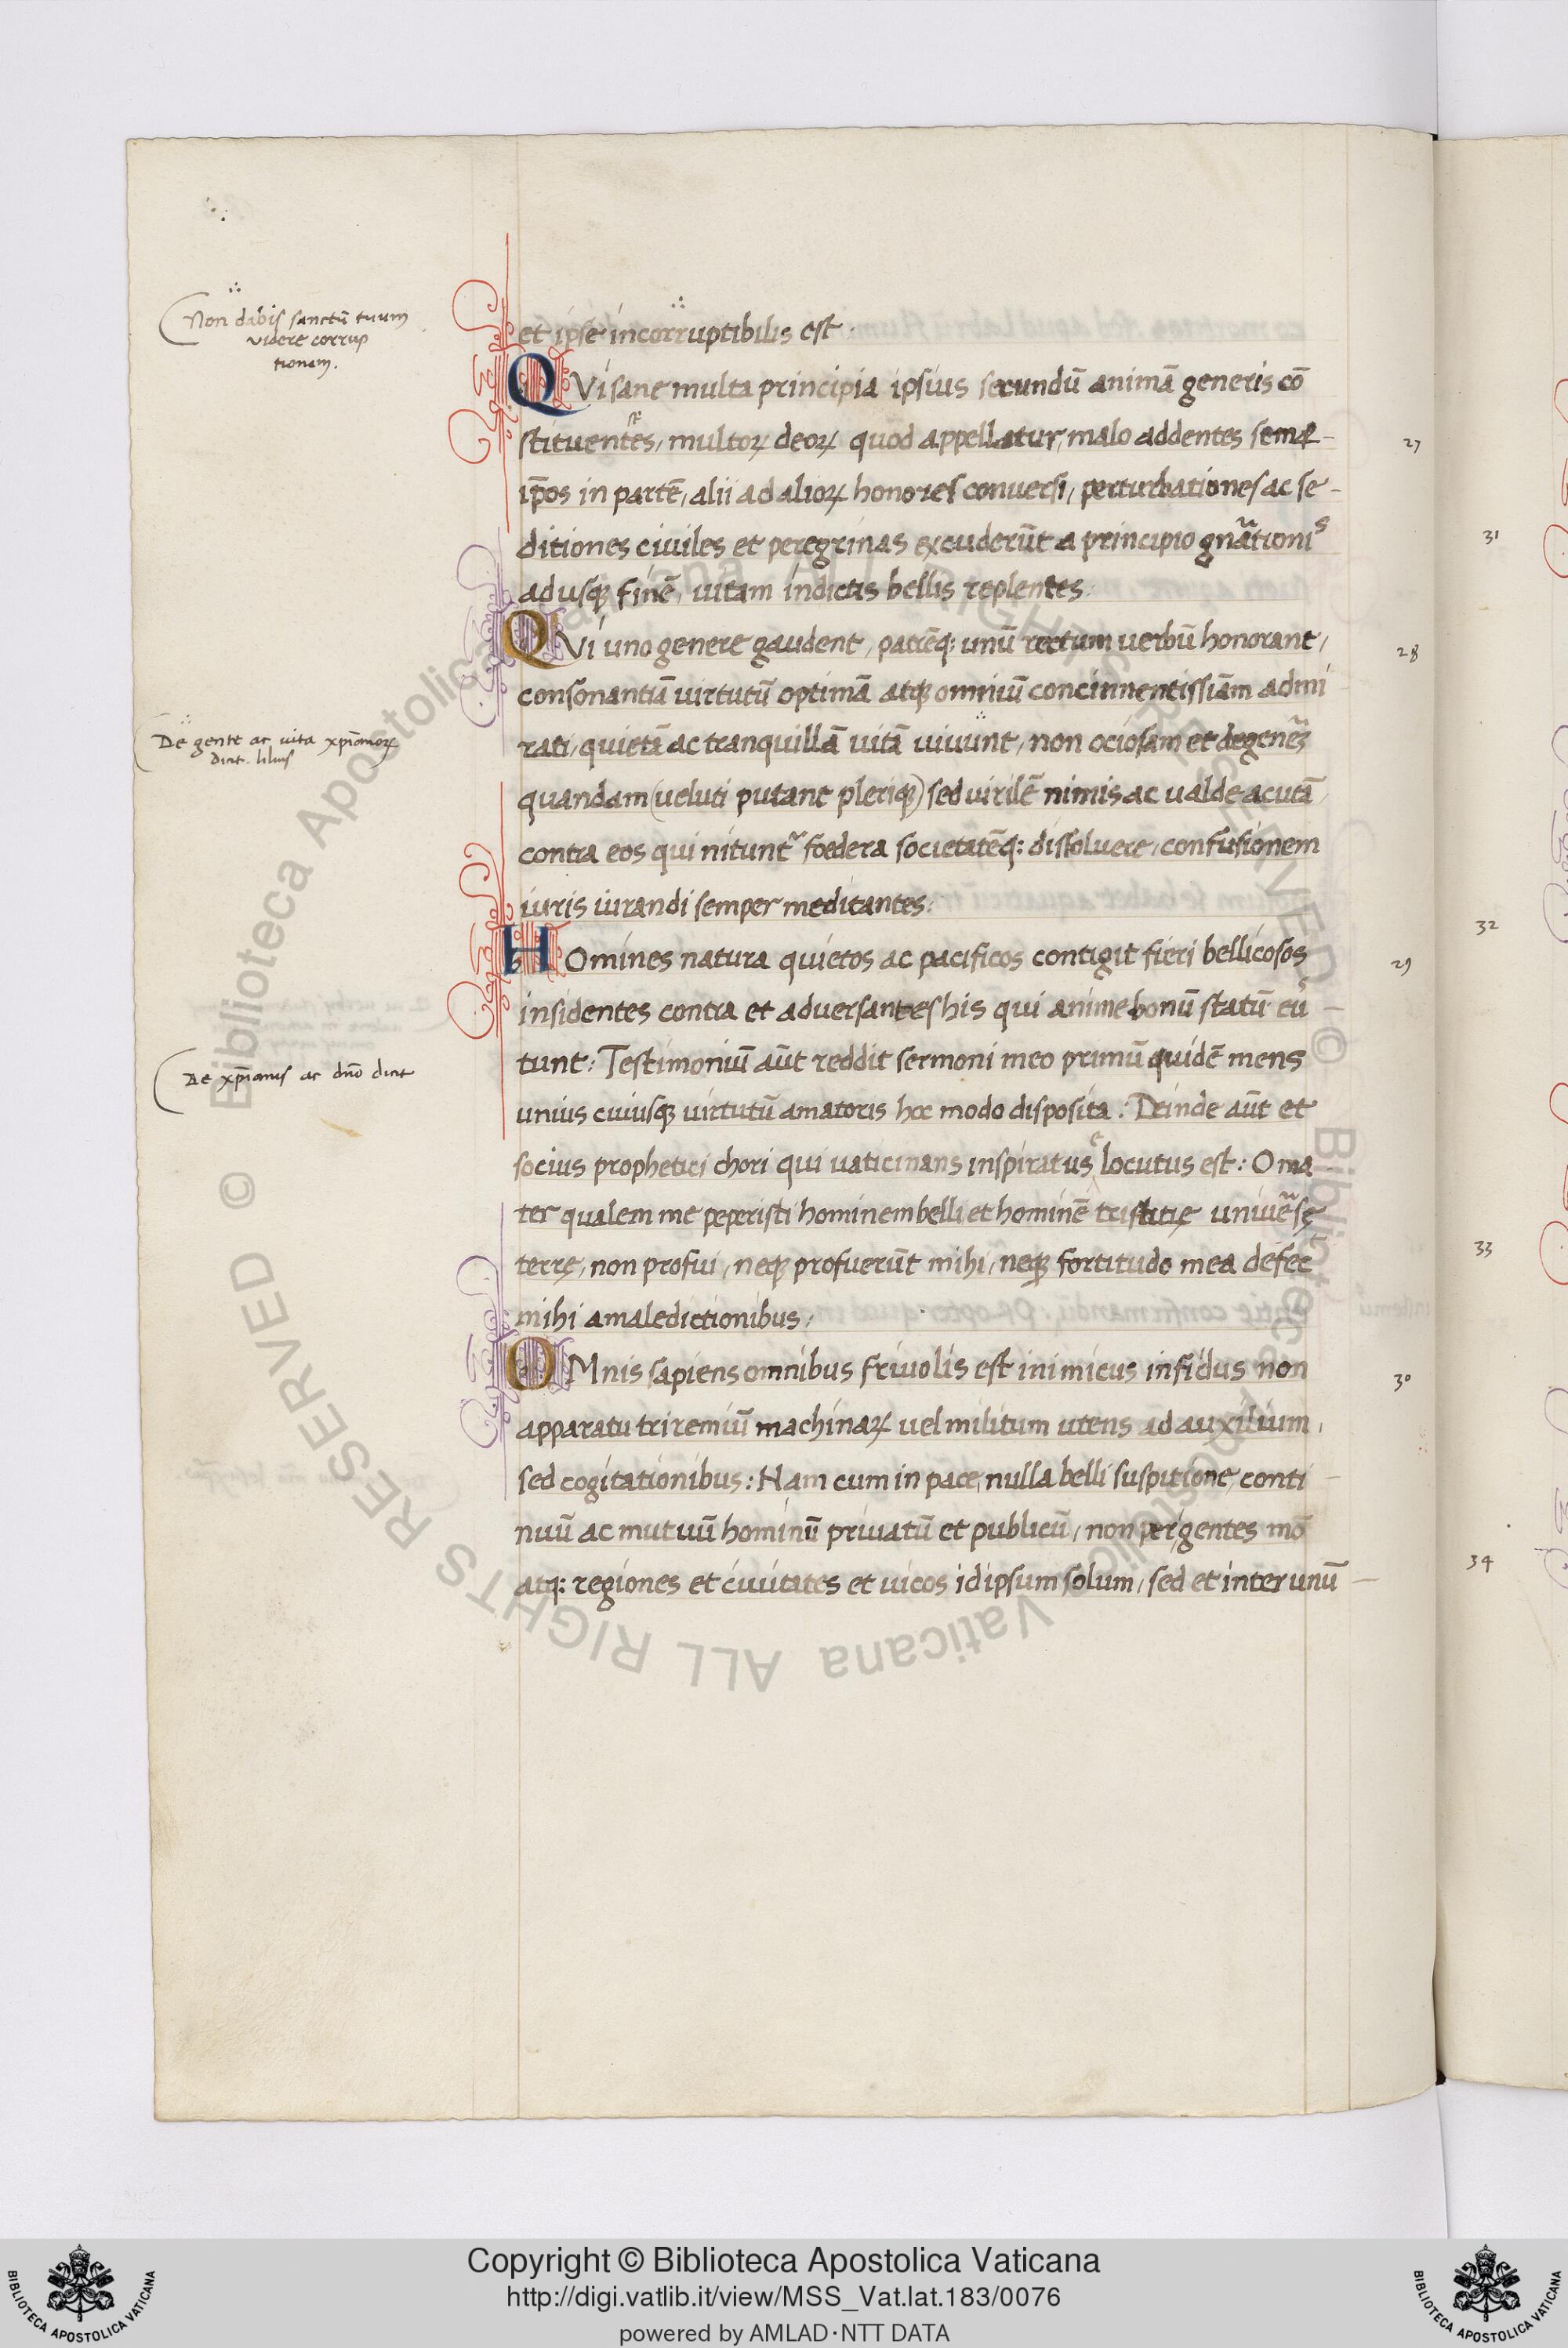 Non dabis sanctū tuum
videre corrup
tionem.
et ipse incorruptibilis est.
QVi sane multa principia ipsius secundū animā generis cō
stituentes, multoꝝ deoꝝ quod appellatur, malo addentes
ip̄os in partē, alii ad alioꝝ honores conuersi, perturbationes ac se-
27
ditiones ciuiles et peregrinas excuderūt a principio gnātionis
adusqꝫ finē, uitam indictis bellis replentes.
QVi uno genere gaudent, patrēq: unū rectum uerbū honorant,
28
consonantiā uirtutū optimā atqꝫ omniū concinnentissiām admi
De gente ac uita xp̄ianoꝝ
rati, quietā ac tranquillā uitā uiuunt, non ociosam et degenēꝝ
quandam (ueluti putant pleriqꝫ) sed virilē nimis ac ualde acutā
contra eos qui nitunt᷑ foedera societatēq: dissoluere, confusionem
iuris iurandi semper meditantes:
HOmines natura quietos ac pacificos contigit fieri bellicosos
29
insidentes contra et adversantes his qui anime bonū statū eū
tunt: Testimoniū aūt reddit sermoni meo primū quidē mens
De xp̄ianis ac dn̄o dicit
unius cuiusqꝫ uirtutū amatoris hoc modo disposita: Deinde aūt et
socius prophetici chori qui uaticinans inspiratus locutus est: O ma
ter qualem me peperisti hominem belli et hominē tristitię uniuēsę
terrę, non profui, neqꝫ profuerūt mihi, neqꝫ fortitudo mea defec
mihi a maledictionibus:
OMnis sapiens omnibus friuolis est inimicus infidus non
30
apparatu triremiū machinaꝝ uel militum utens ad auxilium,
sed cogitationibus: Nam cum in pace, nulla belli suspitione, conti
nuū ac mutuū hominū priuatū et publicū, non per gentes mō
atq: regiones et ciuitates et uicos idipsum solum, sed et inter unū
31
32
33
34
Copyright © Biblioteca Apostolica Vaticana
http://digi.vatlib.it/view/MSS_Vat.lat.183/0076
powered by AMLAD·NTT DATA
BIBLIOTECA APOSTOLICA VATICANA
BIBLIOTECA APOSTOLICA VATICANA
© Biblioteca Apostolica Vaticana ALL RIGHTS RESERVED